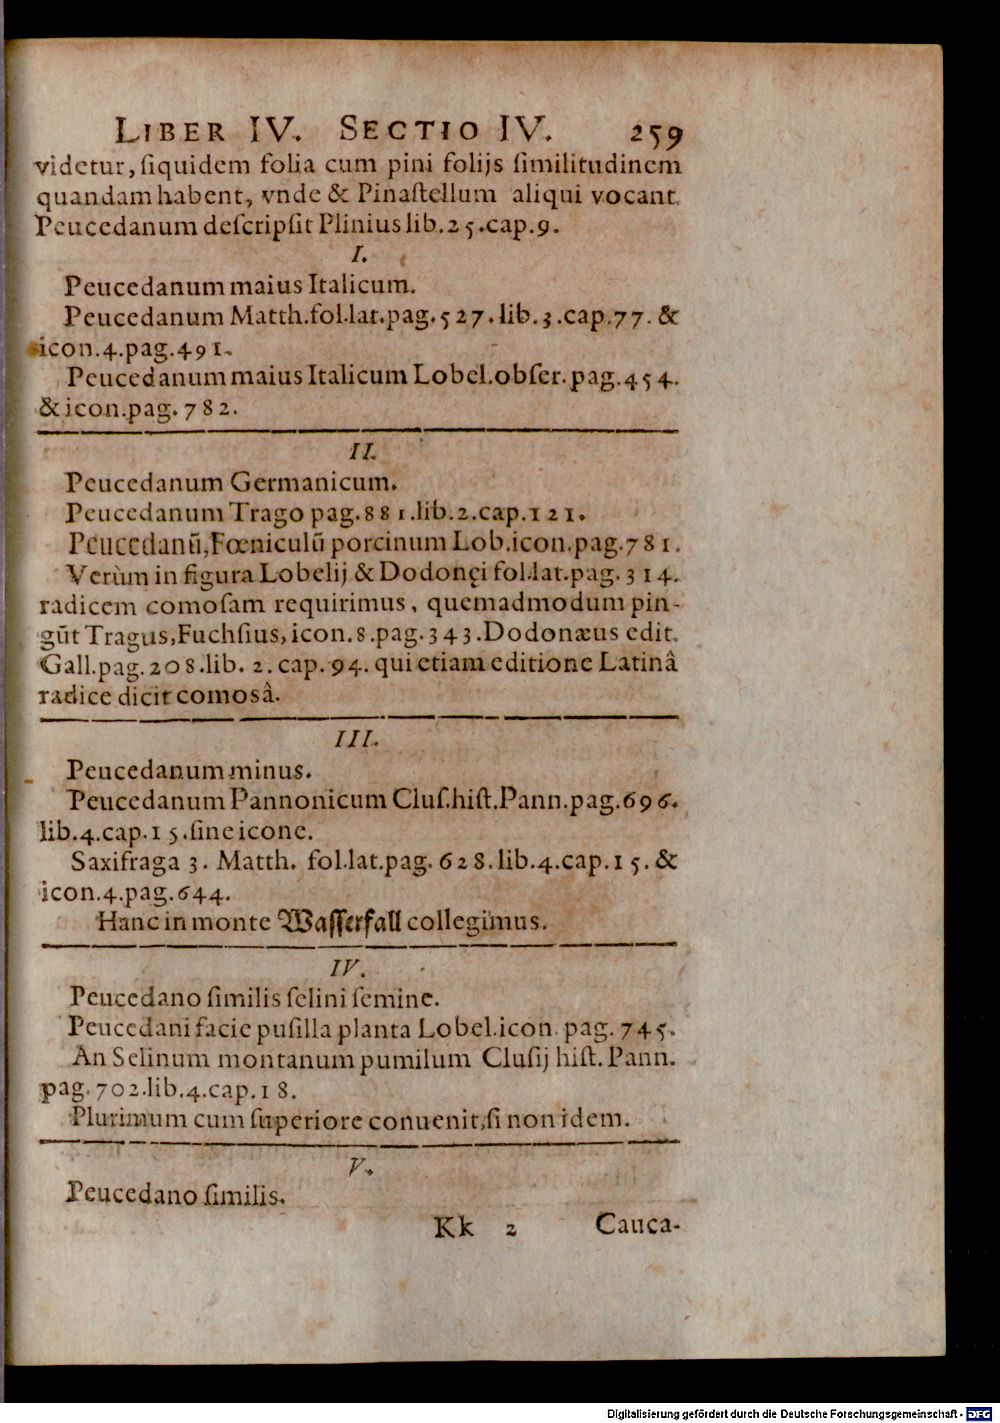 LIBER IV. SECTIO IV. 259
videtur, ſiquidem folia cum pini folijs ſimilitudinem
quandam habent, vnde & Pinaſtellum aliqui vocant.
Peucedanum deſcripſit Plinius lib.25.cap.9.
I.
Peucedanum maius Italicum.
Peucedanum Matth.fol.lat.pag.527.lib.3.cap.77. &
icon.4.pag.491.
Peucedanum maius Italicum Lobel.obſer.pag.454.
& icon.pag.782.
II.
Peucedanum Germanicum.
Peucedanum Trago pag.881.lib.2.cap.121.
Peucedanũ, Fœniculũ porcinum Lob.icon.pag.781.
Verùm in figura Lobelij & Dodonęi fol.lat.pag.314.
radicem comoſam requirimus, quemadmodum pin-
gũt Tragus, Fuchſius, icon.8.pag.343. Dodonæus edit.
Gall.pag.208.lib.2.cap.94. qui etiam editione Latinâ
radice dicit comosâ.
III.
Peucedanum minus.
Peucedanum Pannonicum Cluſ.hiſt.Pann.pag.696.
lib.4.cap.15.ſine icone.
Saxifraga 3. Matth. fol.lat.pag.628.lib.4.cap.15. &
icon.4.pag.644.
Hanc in monte Waſſerfall collegimus.
IV.
Peucedano ſimilis ſelini ſemine.
Peucedani facie puſilla planta Lobel.icon. pag.745.
An Selinum montanum pumilum Cluſij hiſt.Pann.
pag.702.lib.4.cap.18.
Plurimum cum ſuperiore conuenit, ſi non idem.
V.
Peucedano ſimilis.
Kk 2 Cauca-
Digitalisierung gefördert durch die Deutsche Forschungsgemeinschaft - DFG